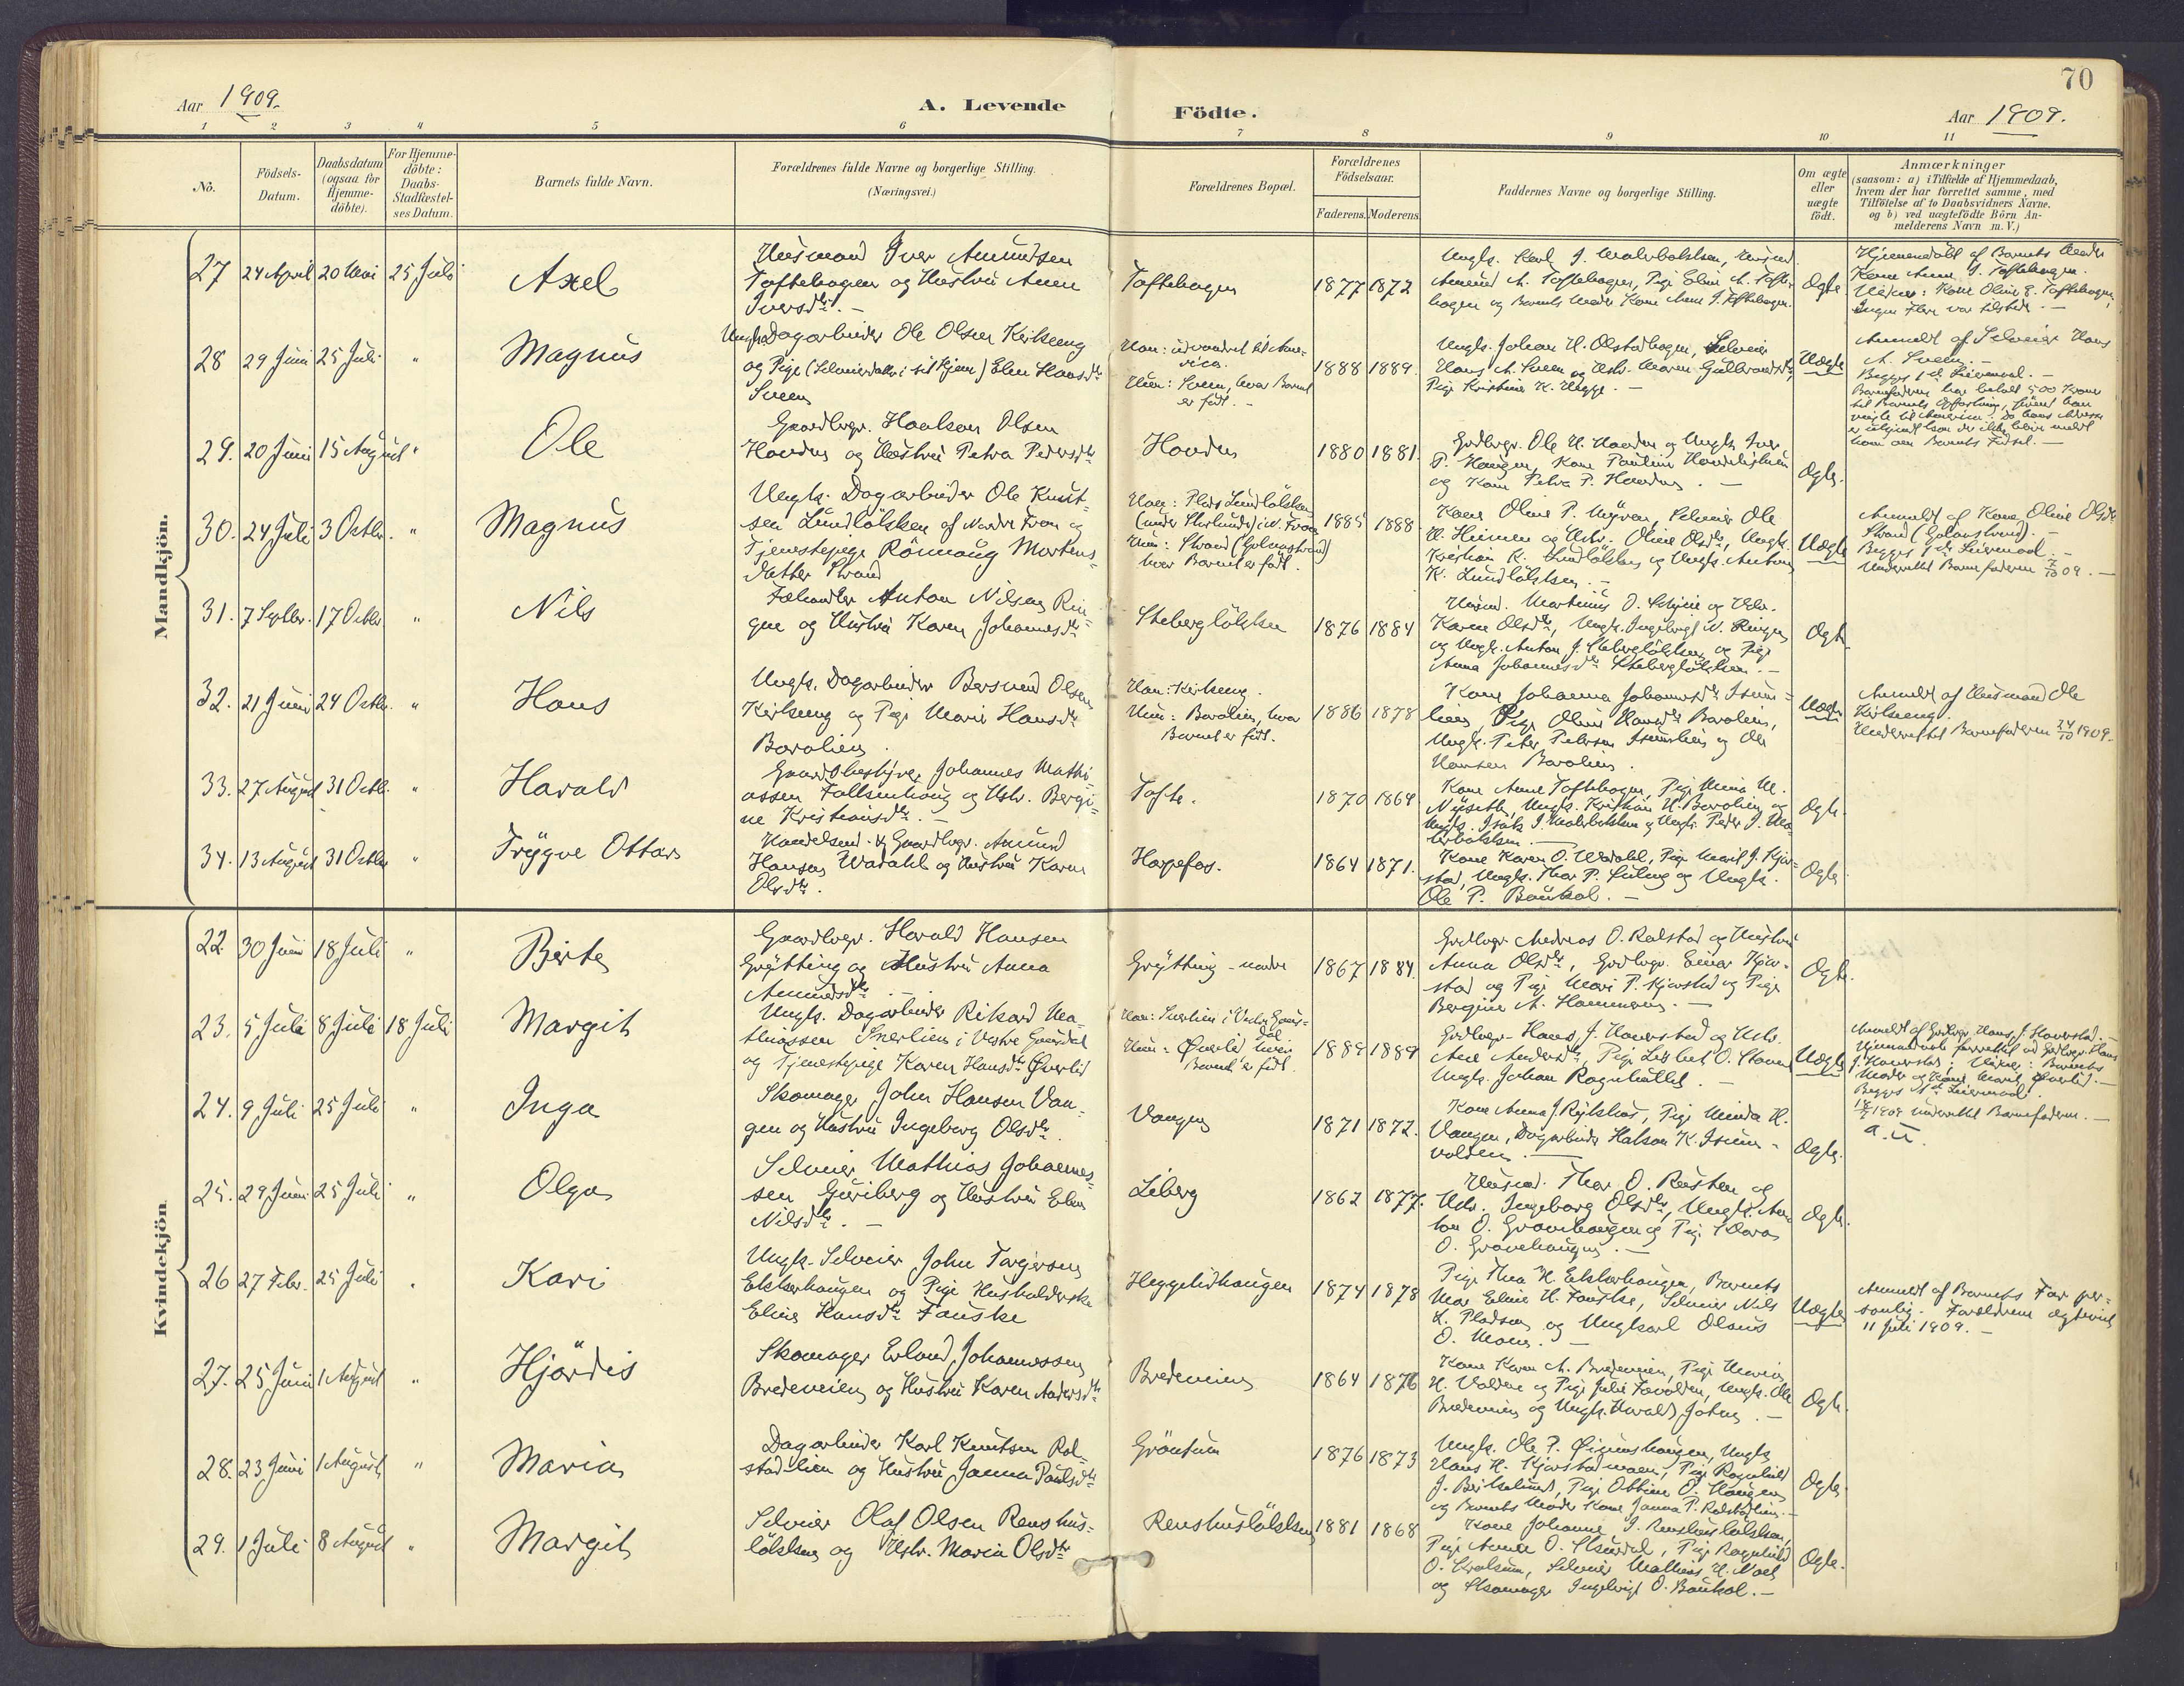 70
Aar 1909.
A. Levende Födte.
Aar 1909.
1 2 3 4 5 6 7 8 9 10 11
No.
Födsels-
Datum.
Daabsdatum
(ogsaa for
Hjemme-
döbte).
For Hjemme-
döbte:
Daabs-
Stadfæstel-
ses Datum.
Barnets fulde Navn.
Forældrenes fulde Navne og borgerlige Stilling.
(Næringsvei.)
Forældrenes Bopæl.
Forældrenes
Födselsaar.
Faderens. Moderens.
Faddernes Navne og borgerlige Stilling.
Om ægte
eller
uægte
födt.
Anmærkninger
(saasom: a) i Tilfælde af Hjemmedaab,
hvem der har forrettet samme, med
Tilföielse af to Daabsvidners Navne,
og b) ved uægtefödte Börn An-
melderens Navn m. V.)
Mandkjön.
27 24 April 20 Mai 25 Juli
Axel
Husmand Iver Amundsen
Toftehagen og Hustru Anne
Iversdtr. —
Toftehagen
1877 1872
Ungk. Karl J.
Amund A. Toftehagen, Pige Eline A. Tofte-
hagen og Barnets Moder Kone Anne I. Toftehagen.
Ægte
Hjemmedöbt af Barnets Moder
Kone Anne I. Toftehagen.
Vidner: Kone Oline E. Toftehagen,
Ingen flere var tilstede. —
28 29 Juni 25 Juli "
Magnus
Ungk. Dagarbeider Ole Olsen Kirkeeng
og Pige (Selveierdatter i sit Hjem) Elen Hansdtr
Sveen
Han: udvandret til Ame-
rica.
Hun: Sveen, hvor Barnet
er födt. —
1888 1889.
Ungk. Johan H. Olstadhagen, Selveier
Hans A. Sveen og Hstr. Maren Gulbrandsdtr,
Pige Kristine K. Hegge. —
Uægte
Anmeldt af Selveier Hans
A. Sveen. —
Begges 1ste Leiermaal. —
Barnefaderen har betalt 500 Kroner
til Barnets Opfostring, förend han
reiste til Amerika. Da hans Adresse
er ubekjendt kan der ikke blive meldt
ham om Barnets Födsel. —
29. 20 Juni 15 August "
Ole
Gaardbrgr. Haakon Olsen
Hovden og Hustru Petra Pedersdtr
Hovden
1880 1881.
Grdbrgr. Ole H. Hovden og Ungk. Iver
P. Haugen, Kone Pauline
og Kone Petra P. Hovden. —
Ægte.
30. 24 Juli 3 Octbr. "
Magnus
Ungk. Dagarbeider Ole Knut-
sen Lundlökken af Nordre Fron og
Tjenestepige Rönnaug Mortens-
datter Strand
Han: Plads Lundlökken
(under Storlunde) i N. Fron
Hun: Strand (Golaastrand)
hvor Barnet er födt.
1885 1888.
Kone Oline P. Myren, Selveier Ole
H. Heimen og Hstr. Oline Olsdtr, Ungk.
Kristian K. Lundlökken og Ungk. Anton
K. Lundlökken. —
Uægte
Anmeldt af Kone Oline Olsdtr
Strand (Golaastrand). —
Begges 1ste Leiermaal. —
Underrettet Barnefaderen 7/10 09. —
31. 7 Septbr. 17 Octbr "
Nils
Fæhandler Anton Nilsen Rin-
gen og Hustru Karen Johannesdtr
Steberglökken
1876 1884
Husmd. Martinus O. og Hstr.
Karen Olsdtr, Ungk. Ingebrigt N. Ringen
og Ungk. Anton J. Steberglökken og Pige
Anna Johannesdtr Steberglökken. —
Ægte
32. 21 Juni 24 Octbr. "
Hans
Ungk. Dagarbeider Bersvend Olsen
Kirkeeng og Pige Marie Hansdtr
Baralien.
Han: Kirkeeng.
Hun: Baralien, hvor
Barnet er födt.
1886 1878
Kone Johanna Johannesdtr Isum-
lien, Pige Oline Hansdtr Baralien,
Ungk. Peter Petersen Isumlien og Ole
Hansen Baralien.
Uægte
Anmeldt af Husmand Ole
Kirkeeng.
Underrettet Barnefaderen 24/10 1909.
33. 27 August 31 Octbr. "
Harald
Gaardsbestyrer Johannes Mathi-
assen Fallsenhaug og Hstr. Bergi-
ne Kristiansdtr. —
Tofte.
1870 1864
Kone Anne Toftehagen, Pige Mina M.
Nyseth, Ungk. Kristian H. Baralien og
Ungk. Isak J. og Ungk. Peder J.
Ægte.
34. 13 August 31 Octbr "
Trygve Ottar
Handelsmd. og Gaardbrgr. Amund
Hansen Wadahl og Hustru Karen
Olsdtr.
Harpefos.
1864 1871.
Kone Karen O. Wadahl, Pige Marit J. Kjör-
stad, Ungk. Thor P. og Ungk.
Ole P. Baukol. —
Ægte.
Kvindekjön
22. 30 Juni 18 Juli "
Birte
Gaardbrgr. Harald Hansen
Grytting og Hustru Anna
Amundsdtr. —
Grytting - nedre
1867 1884.
Grdbrgr Andreas O. Rolstad og Hustru
Anna Olsdtr, Grdbrgr. Einar Kjör-
stad og Pige Mari P. Kjörstad og Pige
Bergine A. Hammeren. —
Ægte.
23. 5 Juli 8 Juli 18 Juli
Margit
Ungk. Dagarbeider Rikard Ma-
thiassen Sverlien i Vestre Gausdal
og Tjenestepige Karen Hansdtr Överlid
Han: Sverlien i Vestre Gaus-
dal
Hun: Överlid hvor
Barnet er födt.
1889 1889
Grdbrgr. Hans J. Haverstad og Hstr.
Ane Andersdtr, Pige Lisbet O.
Ungk. Johan
Uægte
Anmeldt af Grdbrgr. Hans J. Haverstad. —
Hjemmedaab forrettet ved Grdbrgr. Hans
J. Haverstad; Vidner: Barnets
Moder og Kone Marit Överlid. —
Begges 1ste Leiermaal.
18/7 1909 underrettet Barnefaderen. —
24. 9 Juli 25 Juli "
Inga
Skomager John Hansen Van-
gen og Hustru Ingeborg Olsdtr.
Vangen
1871 1872.
Kone Anna J. Rykhus, Pige Minda H.
Vangen, Dagarbeider Halvor K. Isum-
volden. —
Ægte.
25. 29 Juni 25 Juli "
Olga
Selveier Mathias Johannes-
sen Guriberg og Hustru Elen
Nilsdtr. —
Liberg
1862 1877.
Husmd. Thor O. Rusten og
Hstr. Ingeborg Olsdtr, Ungk. An-
ton O. Gravehaugen og Pige
O. Gravehaugen. —
Ægte.
26 27 Febr. 25 Juli "
Kari
Ungk. Selveier John Torgersen
Ekkerhaugen og Pige Husholderske
Eline Hansdtr Fauske
Heggelidhaugen
1874 1878
Pige Thea H. Ekkerhaugen, Barnets
Mor Eline H. Fauske, Selveier Nils
K. Pladsen og Ungkarl Olaus
O. Moen. —
Uægte
Anmeldt af Barnets Far per-
sonlig. Forældrene ægteviet
11 Juli 1909. —
27. 25 Juni 1 August "
Hjördis
Skomager Erland Johannessen
Bredeveien og Hustru Karen Andersdtr
Bredeveien
1864 1876
Kone Karen A. Bredeveien, Pige Maria
H. Volden og Pige Julie Favolden, Ungk. Ole
Bredeveien og Ungk. Harald Johns. —
Ægte.
28. 23 Juni 1 August "
Maria
Dagarbeider Karl Knutsen Rol-
stadlien og Hustru Janna Paulsdtr
Gröntun
1876 1873
Ungk. Ole P. Ungk.
Hans H. Kjörstadmoen, Pige Ragnhild
J. Pige Ottine O. Haugen
og Barnets Moder Kone Janna P. Rolstadlien. —
Ægte.
29. 1 Juli 8 August "
Margit
Selveier Olaf Olsen Renshus-
lökken og Hstr. Maria Olsdtr
Renshuslökken
1881 1868
Kone Johanne J. Renshuslökken,
Pige Anne O. Pige Ragnhild
O. Selveier Mathias H.
og Skomager Ingebrigt O. Baukol. —
Ægte.